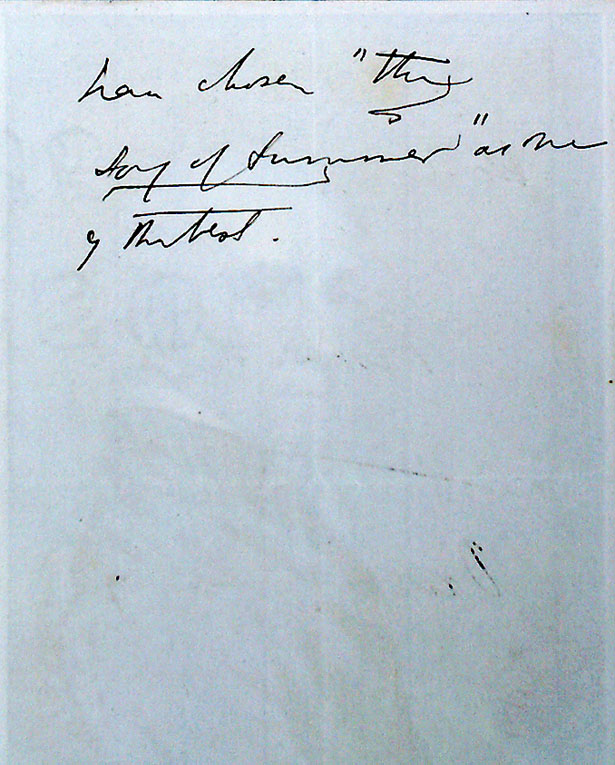 have chosen "This
day of Summer" as one
of the best.